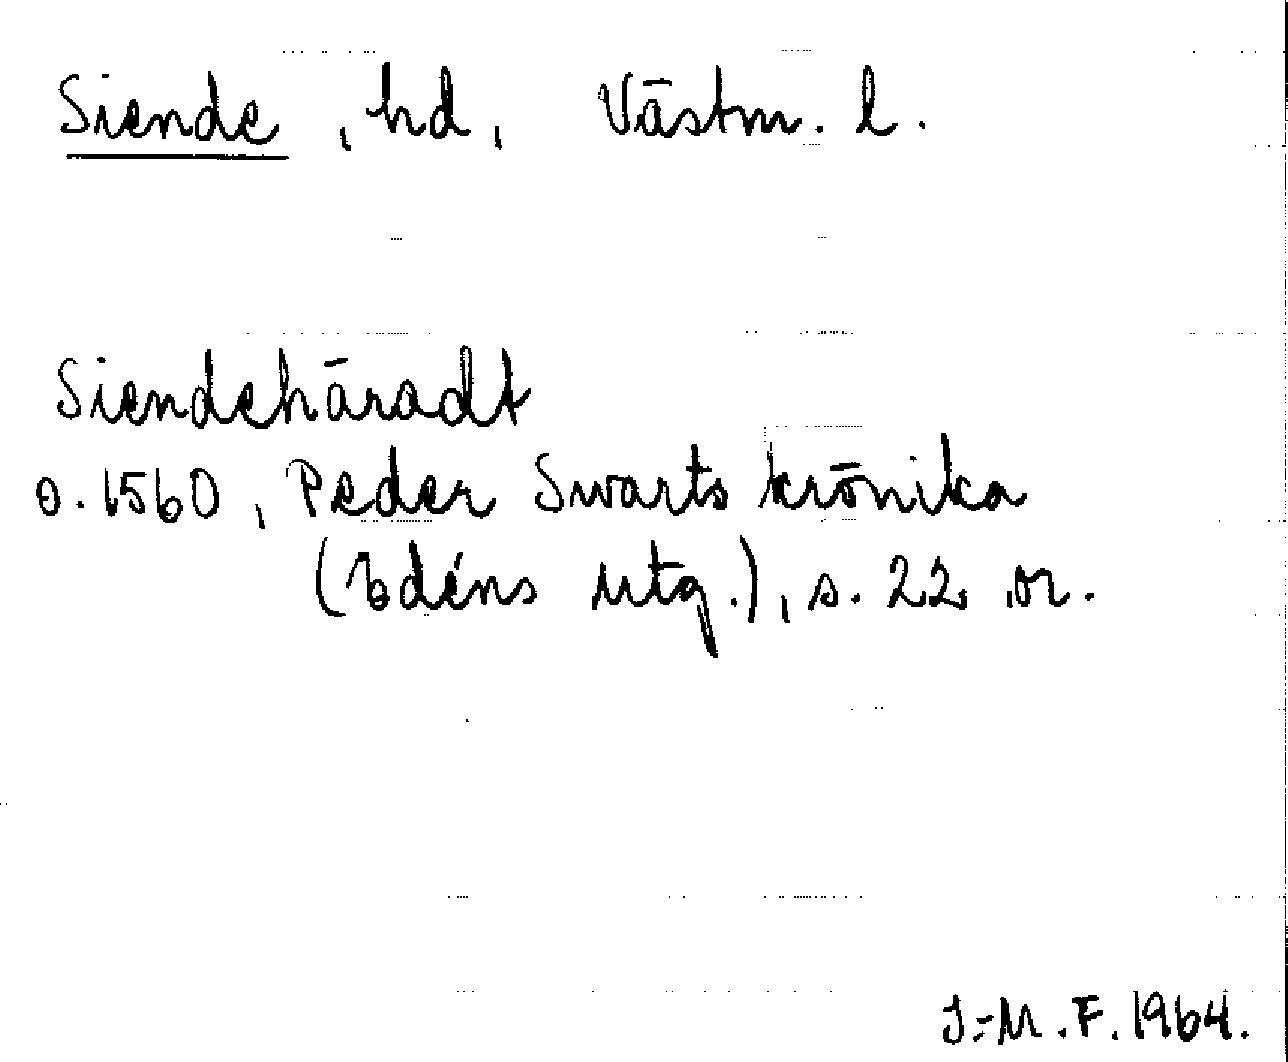 Siende, hd, Västm. l.
Siendehäradt
o. 1560, Peder Swarts krönika
(Edéns utg.), s. 22 or.
J-M.F. 1964.